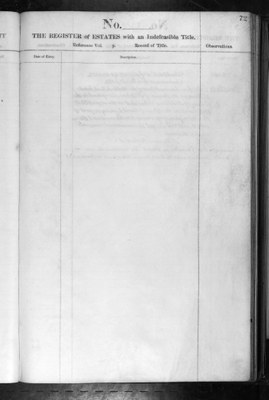 72
No.
THE REGISTER of ESTATES with an Indefeasible Title.
Reference Vol. Record of Title. Observations
Date of Entry. Description.